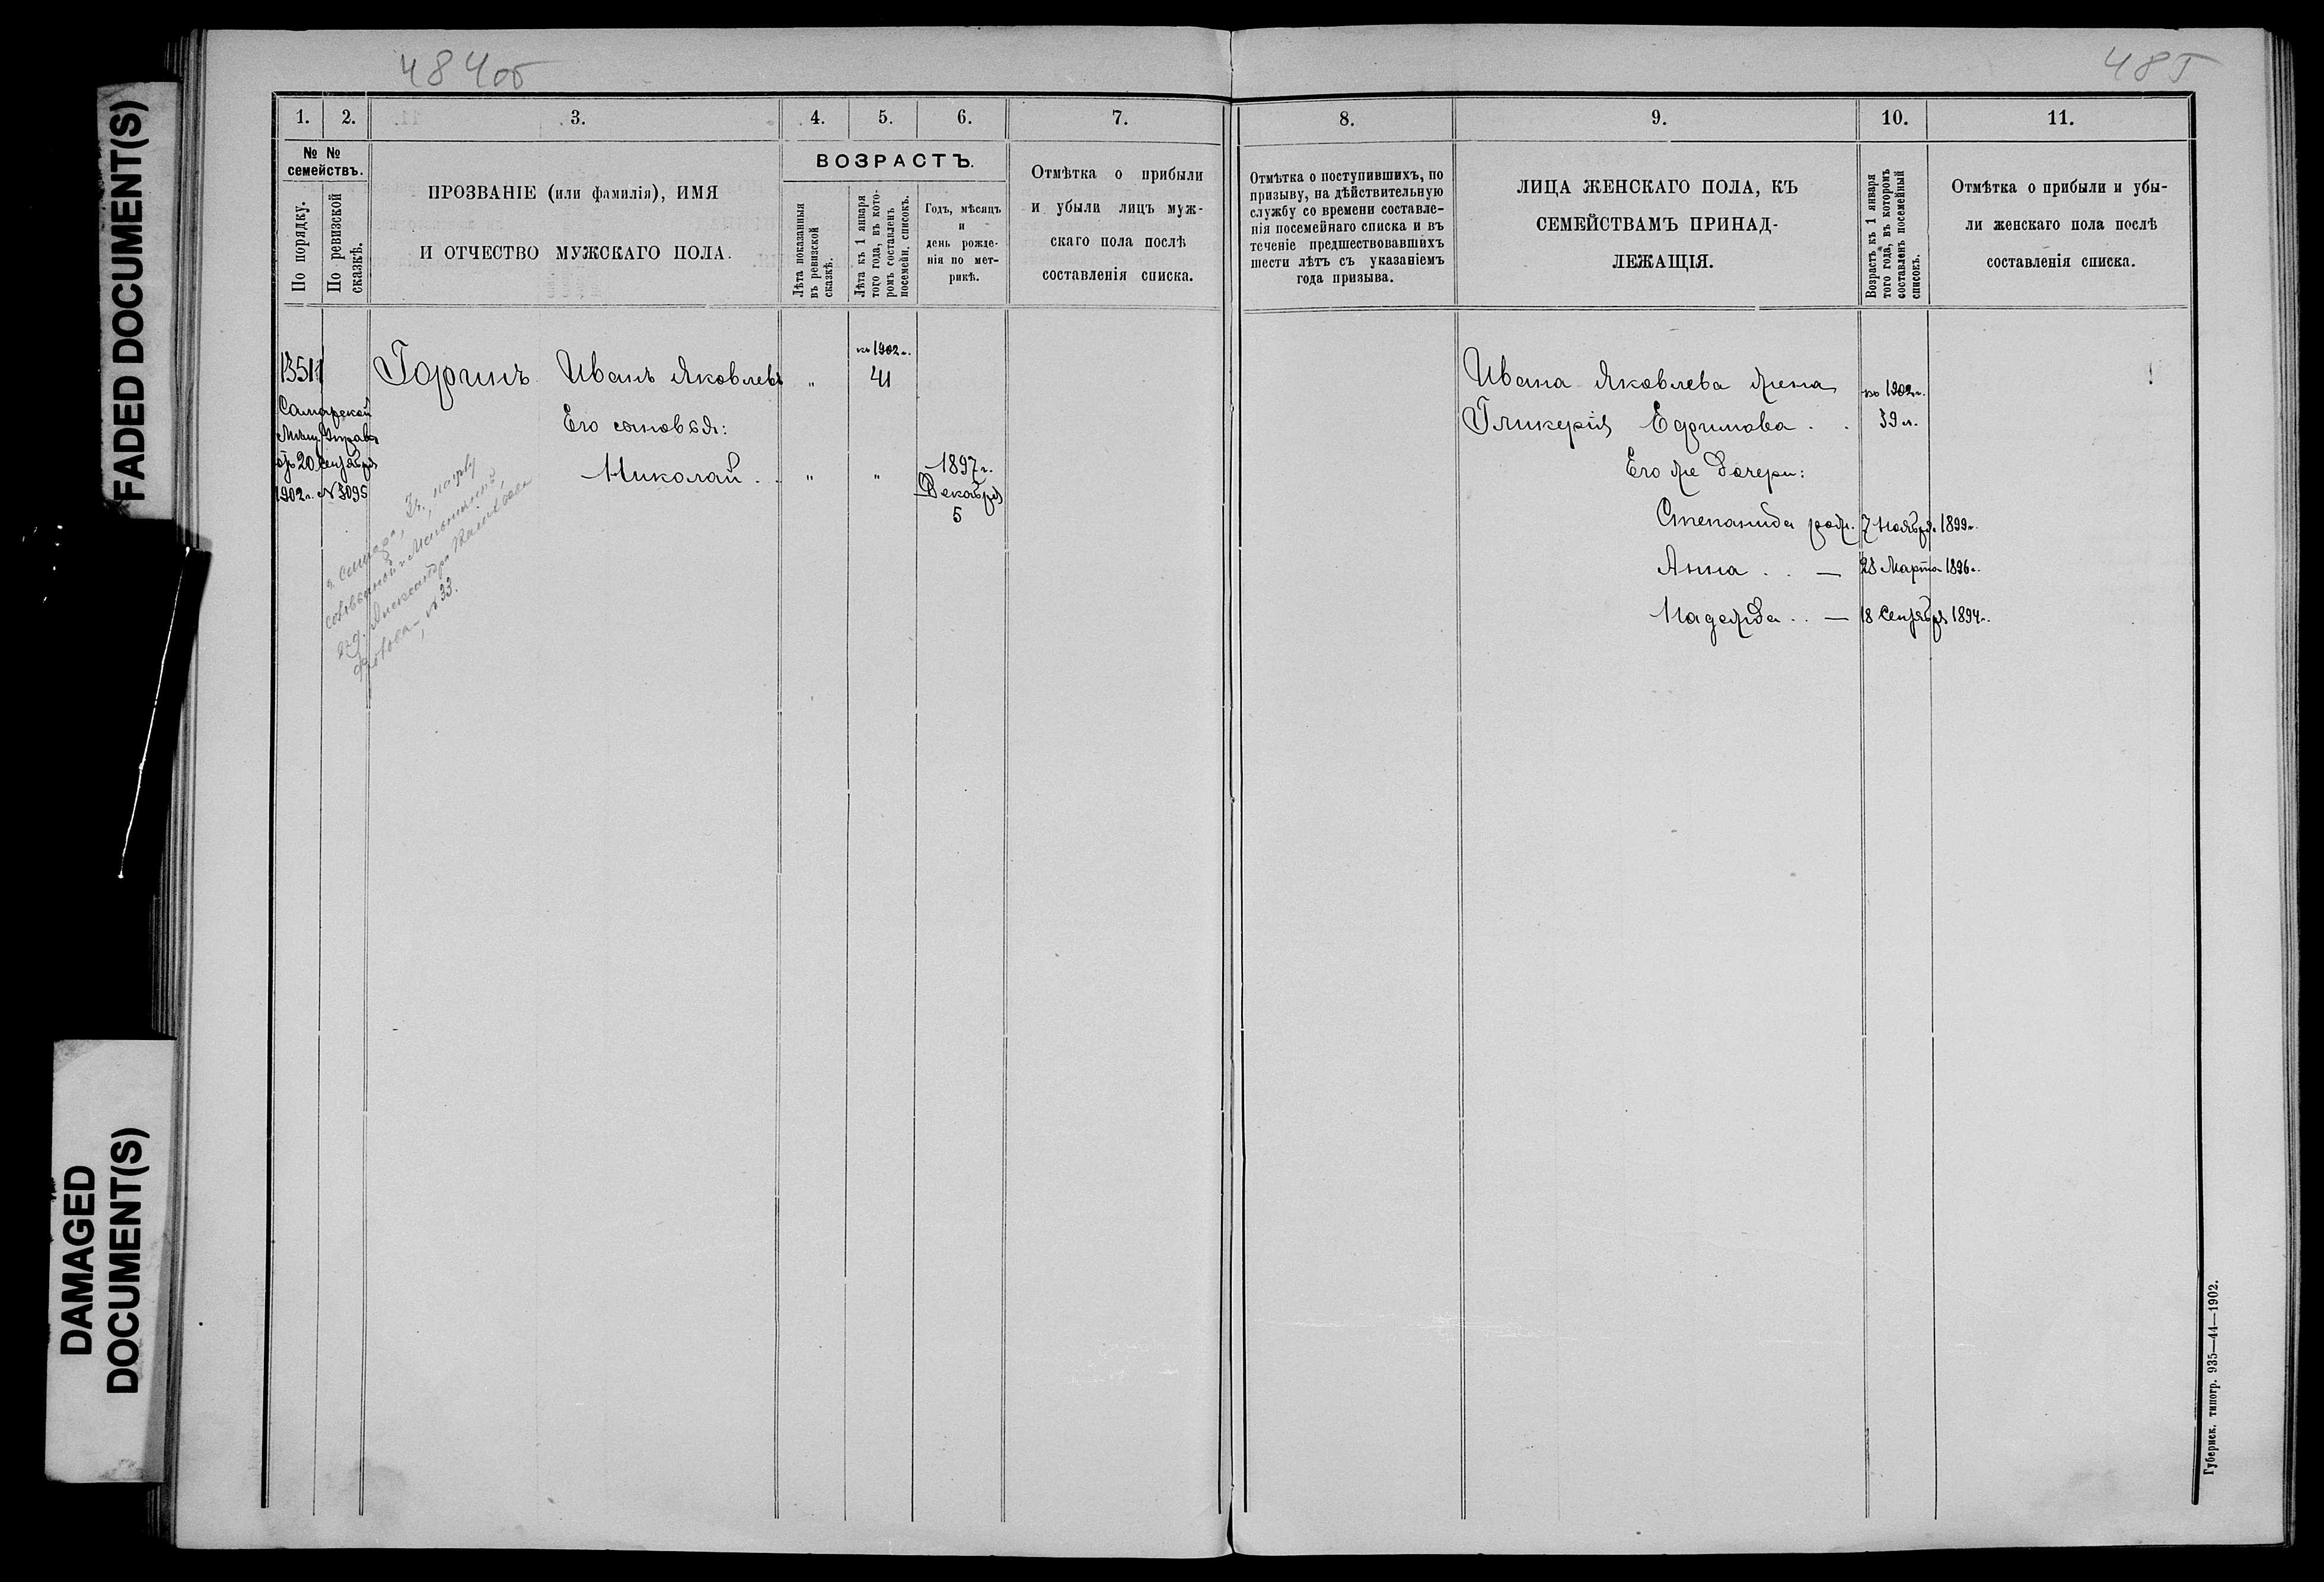 FADED DOCUMENT(S)
DAMAGED
DOCUMENT(S)
484об
1. 2. 3. 4. 5. 6. 7.
№ №
семействъ.
По порядку.
По ревизской
сказкѣ.
ПРОЗВАНІЕ (или фамилія), ИМЯ
И ОТЧЕСТВО МУЖСКАГО ПОЛА.
ВОЗРАСТЪ.
Лѣта показанныя
въ ревизской
сказкѣ.
Лѣта къ 1 января
того года, въ кото-
ромъ составленъ
посемейн. списокъ.
Годъ, мѣсяцъ
и
день рожде-
нія по мет-
рикѣ.
Отмѣтка о прибыли
и убыли лицъ муж-
скаго пола послѣ
составленія списка.
1351
Самарской
Мѣщ. Управы
отъ 20 Сентября
1902 г. № 3095
Горинъ Иванъ Яковлевъ "
къ 1902 г.
41
Его сыновья:
Николай . . " "
1897 г.
Декабря
5
г. Самара, 3 ч.,
№ 33.
485
8. 9. 10. 11.
Отмѣтка о поступившихъ, по
призыву, на дѣйствительную
службу со времени составле-
нія посемейнаго списка и въ
теченіе предшествовавшихъ
шести лѣтъ съ указаніемъ
года призыва.
ЛИЦА ЖЕНСКАГО ПОЛА, КЪ
СЕМЕЙСТВАМЪ ПРИНАД-
ЛЕЖАЩІЯ.
Возрастъ къ 1 января
того года, въ которомъ
составленъ посемейный
списокъ.
Отмѣтка о прибыли и убы-
ли женскаго пола послѣ
составленія списка.
Ивана Яковлева жена
къ 1902 г.
Гликерія Ефимова . . 39 л.
Его же дочери:
Степанида родл. 7 Ноября 1899 г.
Анна . . — 28 Марта 1896 г.
Надежда . . — 18 Сентября 1894 г.
Губернск. типогр. 935—44—1902.